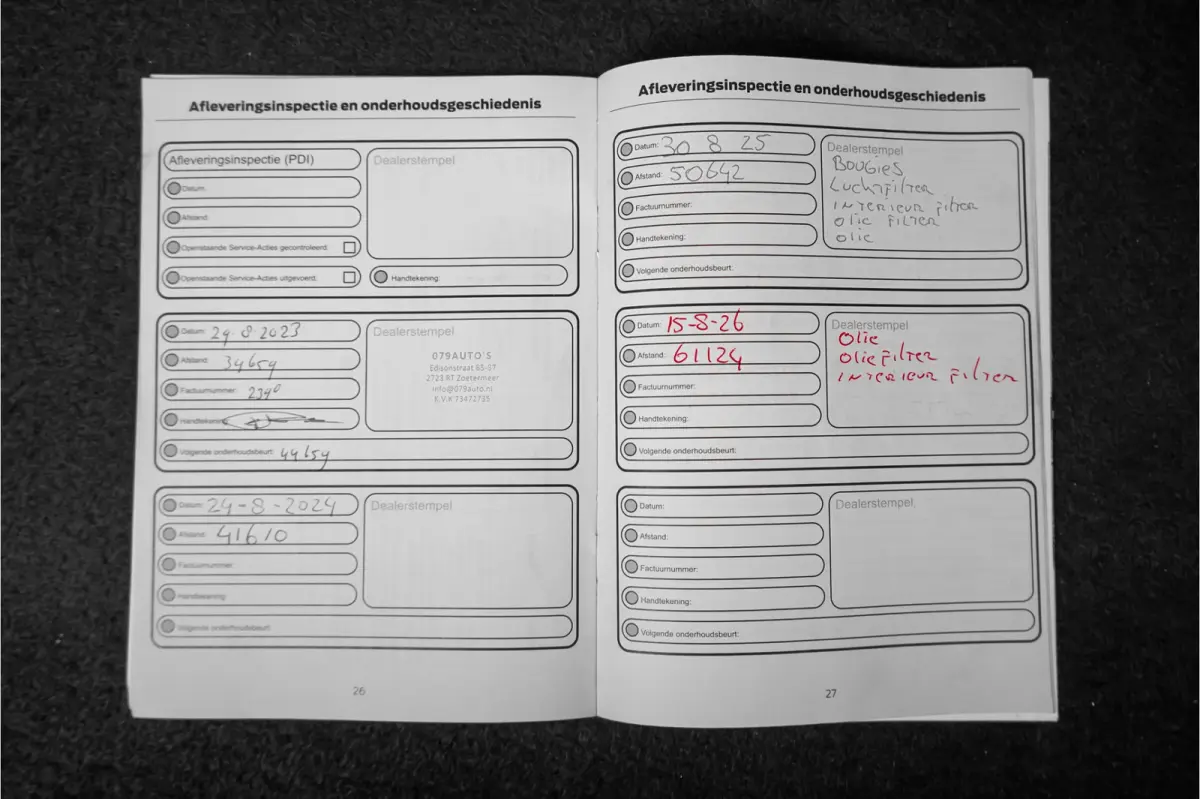 Afleveringsinspectie en onderhoudsgeschiedenis
Afleveringsinspectie (PDI)
Datum:
Afstand:
Openstaande Service-Acties gecontroleerd:
Openstaande Service-Acties uitgevoerd:
Dealerstempel
Handtekening:
Datum: 29-8-2023
Afstand: 34654
Factuurnummer:
Handtekening:
Volgende onderhoudsbeurt: 44654
Dealerstempel
079AUTO'S
Edisonstraat 65-67
2723 RT Zoetermeer
info@079auto.nl
K.V.K 73472735
Datum: 24-8-2024
Afstand: 41610
Factuurnummer:
Handtekening:
Volgende onderhoudsbeurt:
Dealerstempel
26
Afleveringsinspectie en onderhoudsgeschiedenis
Datum: 30 8 25
Afstand: 50642
Factuurnummer:
Handtekening:
Volgende onderhoudsbeurt:
Dealerstempel
BOUGIES
LUCHTFILTER
INTERIEUR FILTER
OLIE FILTER
OLIE
Datum: 15-8-26
Afstand: 61124
Factuurnummer:
Handtekening:
Volgende onderhoudsbeurt:
Dealerstempel
OLIE
OLIE FILTER
INTERIEUR FILTER
Datum:
Afstand:
Factuurnummer:
Handtekening:
Volgende onderhoudsbeurt:
Dealerstempel
27